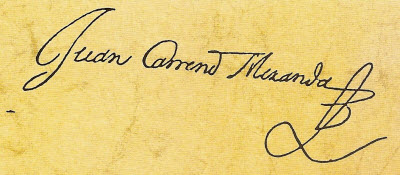 Juan Carreno Miranda